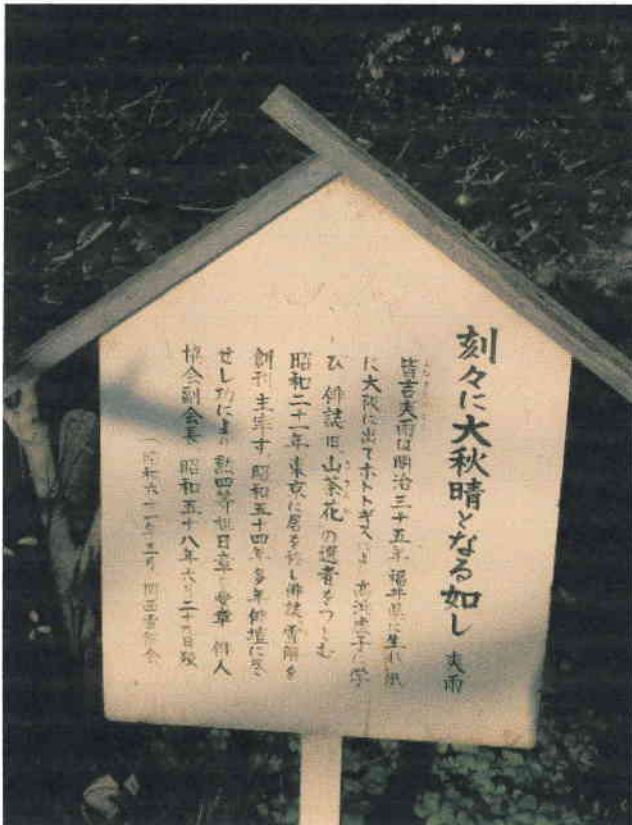 刻々に大秋晴となる如し 爽雨
皆吉爽雨は明治三十五年福井県に生れ
に大阪に出てホトトギスにより高浜虚子に学
び 俳誌旧山茶花の選者をつとむ
昭和二十一年東京に居を移し俳誌雪解を
創刊主宰す 昭和五十四年多年俳壇に尽
せし功により勲四等旭日章を受章 俳人
協会副会長 昭和五十八年六月二十九日歿
関西雪解会